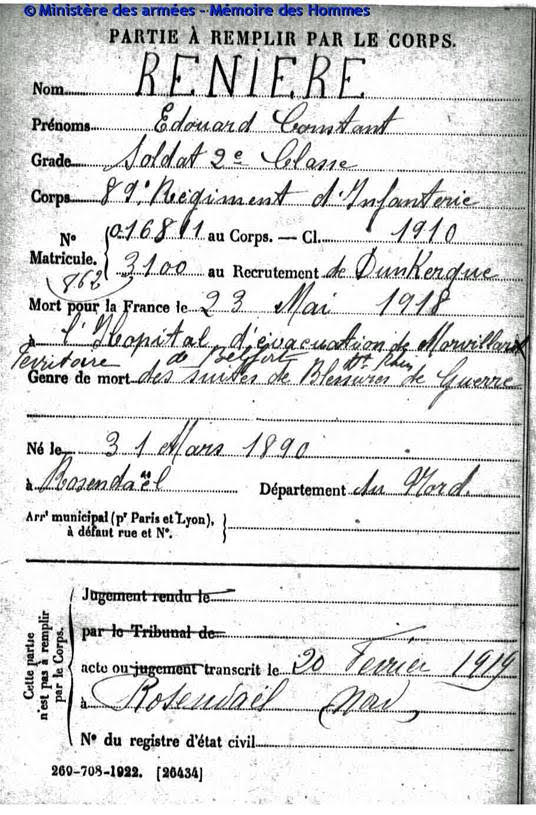 © Ministère des armées - Mémoire des Hommes
PARTIE À REMPLIR PAR LE CORPS.
Nom RENIERE
Prénoms Edouard Constant
Grade Soldat 2e Classe
Corps 89e Régiment d'Infanterie
No Matricule. 016811 au Corps. — Cl. 1910
862
3100 au Recrutement de Dunkerque
Mort pour la France le 23 Mai 1918
à l'Hopital d'évacuation de Morvillars
Territoire de Belfort Ht Rhin
Genre de mort des suites de Blessures de Guerre
Né le 31 Mars 1890
à Rosendaël Département du Nord.
Arrt municipal (pr Paris et Lyon),
à défaut rue et No.
Cette partie n'est pas à remplir par le Corps.
Jugement rendu le
par le Tribunal de
acte ou jugement transcrit le 20 Fevrier 1919
à Rosendaël Nord
No du registre d'état civil
269-708-1922. [26434]